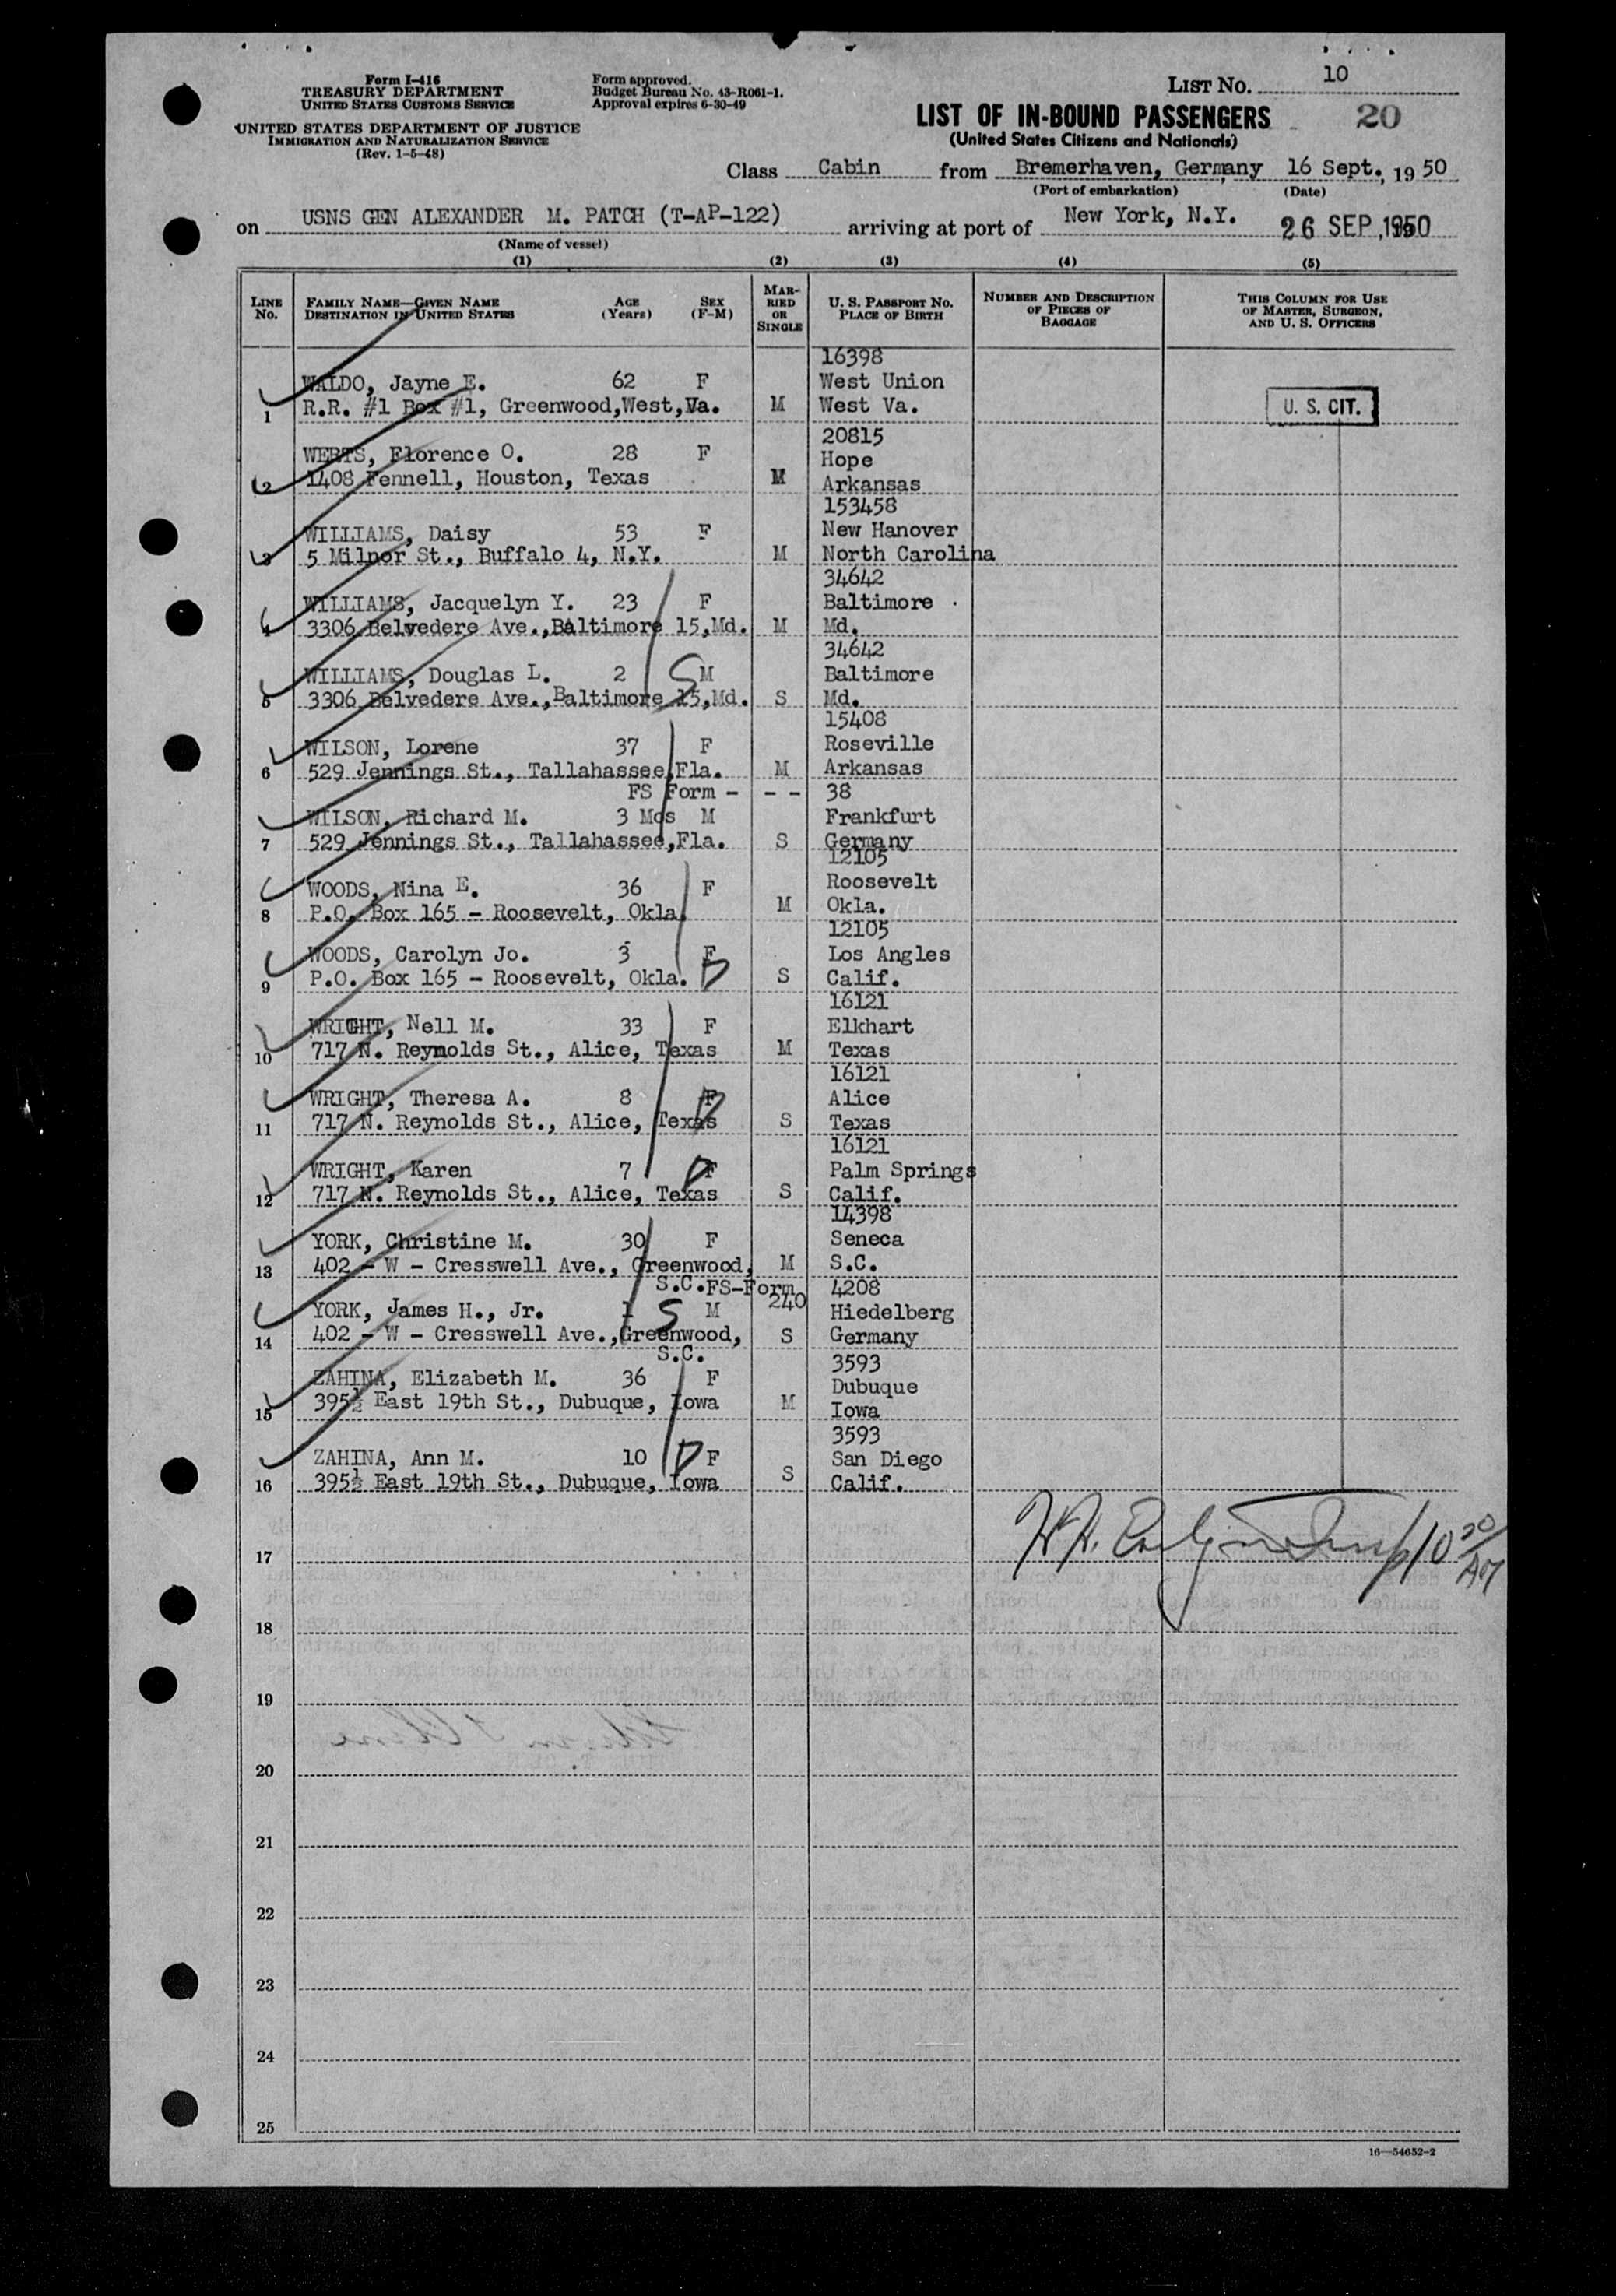 Form I-416
TREASURY DEPARTMENT
UNITED STATES CUSTOMS SERVICE
UNITED STATES DEPARTMENT OF JUSTICE
IMMIGRATION AND NATURALIZATION SERVICE
(Rev. 1-5-48)
Form approved.
Budget Bureau No. 43-R061-1.
Approval expires 6-30-49
LIST No. 10
LIST OF IN-BOUND PASSENGERS 20
(United States Citizens and Nationals)
Class Cabin from Bremerhaven, Germany 16 Sept., 1950
(Port of embarkation) (Date)
on USNS GEN ALEXANDER M. PATCH (T-AP-122) arriving at port of New York, N.Y. 26 SEP, 1950
(Name of vessel)
(1) (2) (3) (4) (5)
LINE No.
FAMILY NAME—GIVEN NAME
DESTINATION IN UNITED STATES
AGE (Years)
SEX (F-M)
MARRIED OR SINGLE
U. S. PASSPORT No.
PLACE OF BIRTH
NUMBER AND DESCRIPTION OF PIECES OF BAGGAGE
THIS COLUMN FOR USE OF MASTER, SURGEON, AND U. S. OFFICERS
16398
WALDO, Jayne E. 62 F West Union
1 R.R. #1 Box #1, Greenwood,West,Va. M West Va. U. S. CIT.
20815
WERTS, Florence O. 28 F Hope
2 1408 Fennell, Houston, Texas M Arkansas
153458
WILLIAMS, Daisy 53 F New Hanover
3 5 Milnor St., Buffalo 4, N.Y. M North Carolina
34642
WILLIAMS, Jacquelyn Y. 23 F Baltimore
4 3306 Belvedere Ave.,Baltimore 15,Md. M Md.
34642
WILLIAMS, Douglas L. 2 S M Baltimore
5 3306 Belvedere Ave.,Baltimore 15,Md. S Md.
15408
WILSON, Lorene 37 F Roseville
6 529 Jennings St., Tallahassee,Fla. M Arkansas
FS Form - - - 38
WILSON, Richard M. 3 Mos M Frankfurt
7 529 Jennings St., Tallahassee,Fla. S Germany
12105
WOODS, Nina E. 36 F Roosevelt
8 P.O. Box 165 - Roosevelt, Okla. M Okla.
12105
WOODS, Carolyn Jo. 3 F Los Angles
9 P.O. Box 165 - Roosevelt, Okla. D S Calif.
16121
WRIGHT, Nell M. 33 F Elkhart
10 717 N. Reynolds St., Alice, Texas M Texas
16121
WRIGHT, Theresa A. 8 F D Alice
11 717 N. Reynolds St., Alice, Texas S Texas
16121
WRIGHT, Karen 7 D F Palm Springs
12 717 N. Reynolds St., Alice, Texas S Calif.
14398
YORK, Christine M. 30 F Seneca
13 402 - W - Cresswell Ave., Greenwood, M S.C.
S.C. FS-Form 240 4208
YORK, James H., Jr. 1 S M Hiedelberg
14 402 - W - Cresswell Ave.,Greenwood, S Germany
S.C.
3593
ZAHINA, Elizabeth M. 36 F Dubuque
15 395½ East 19th St., Dubuque, Iowa M Iowa
3593
ZAHINA, Ann M. 10 D F San Diego
16 395½ East 19th St., Dubuque, Iowa S Calif.
17
18
19
20
21
22
23
24
25
16—54652-2